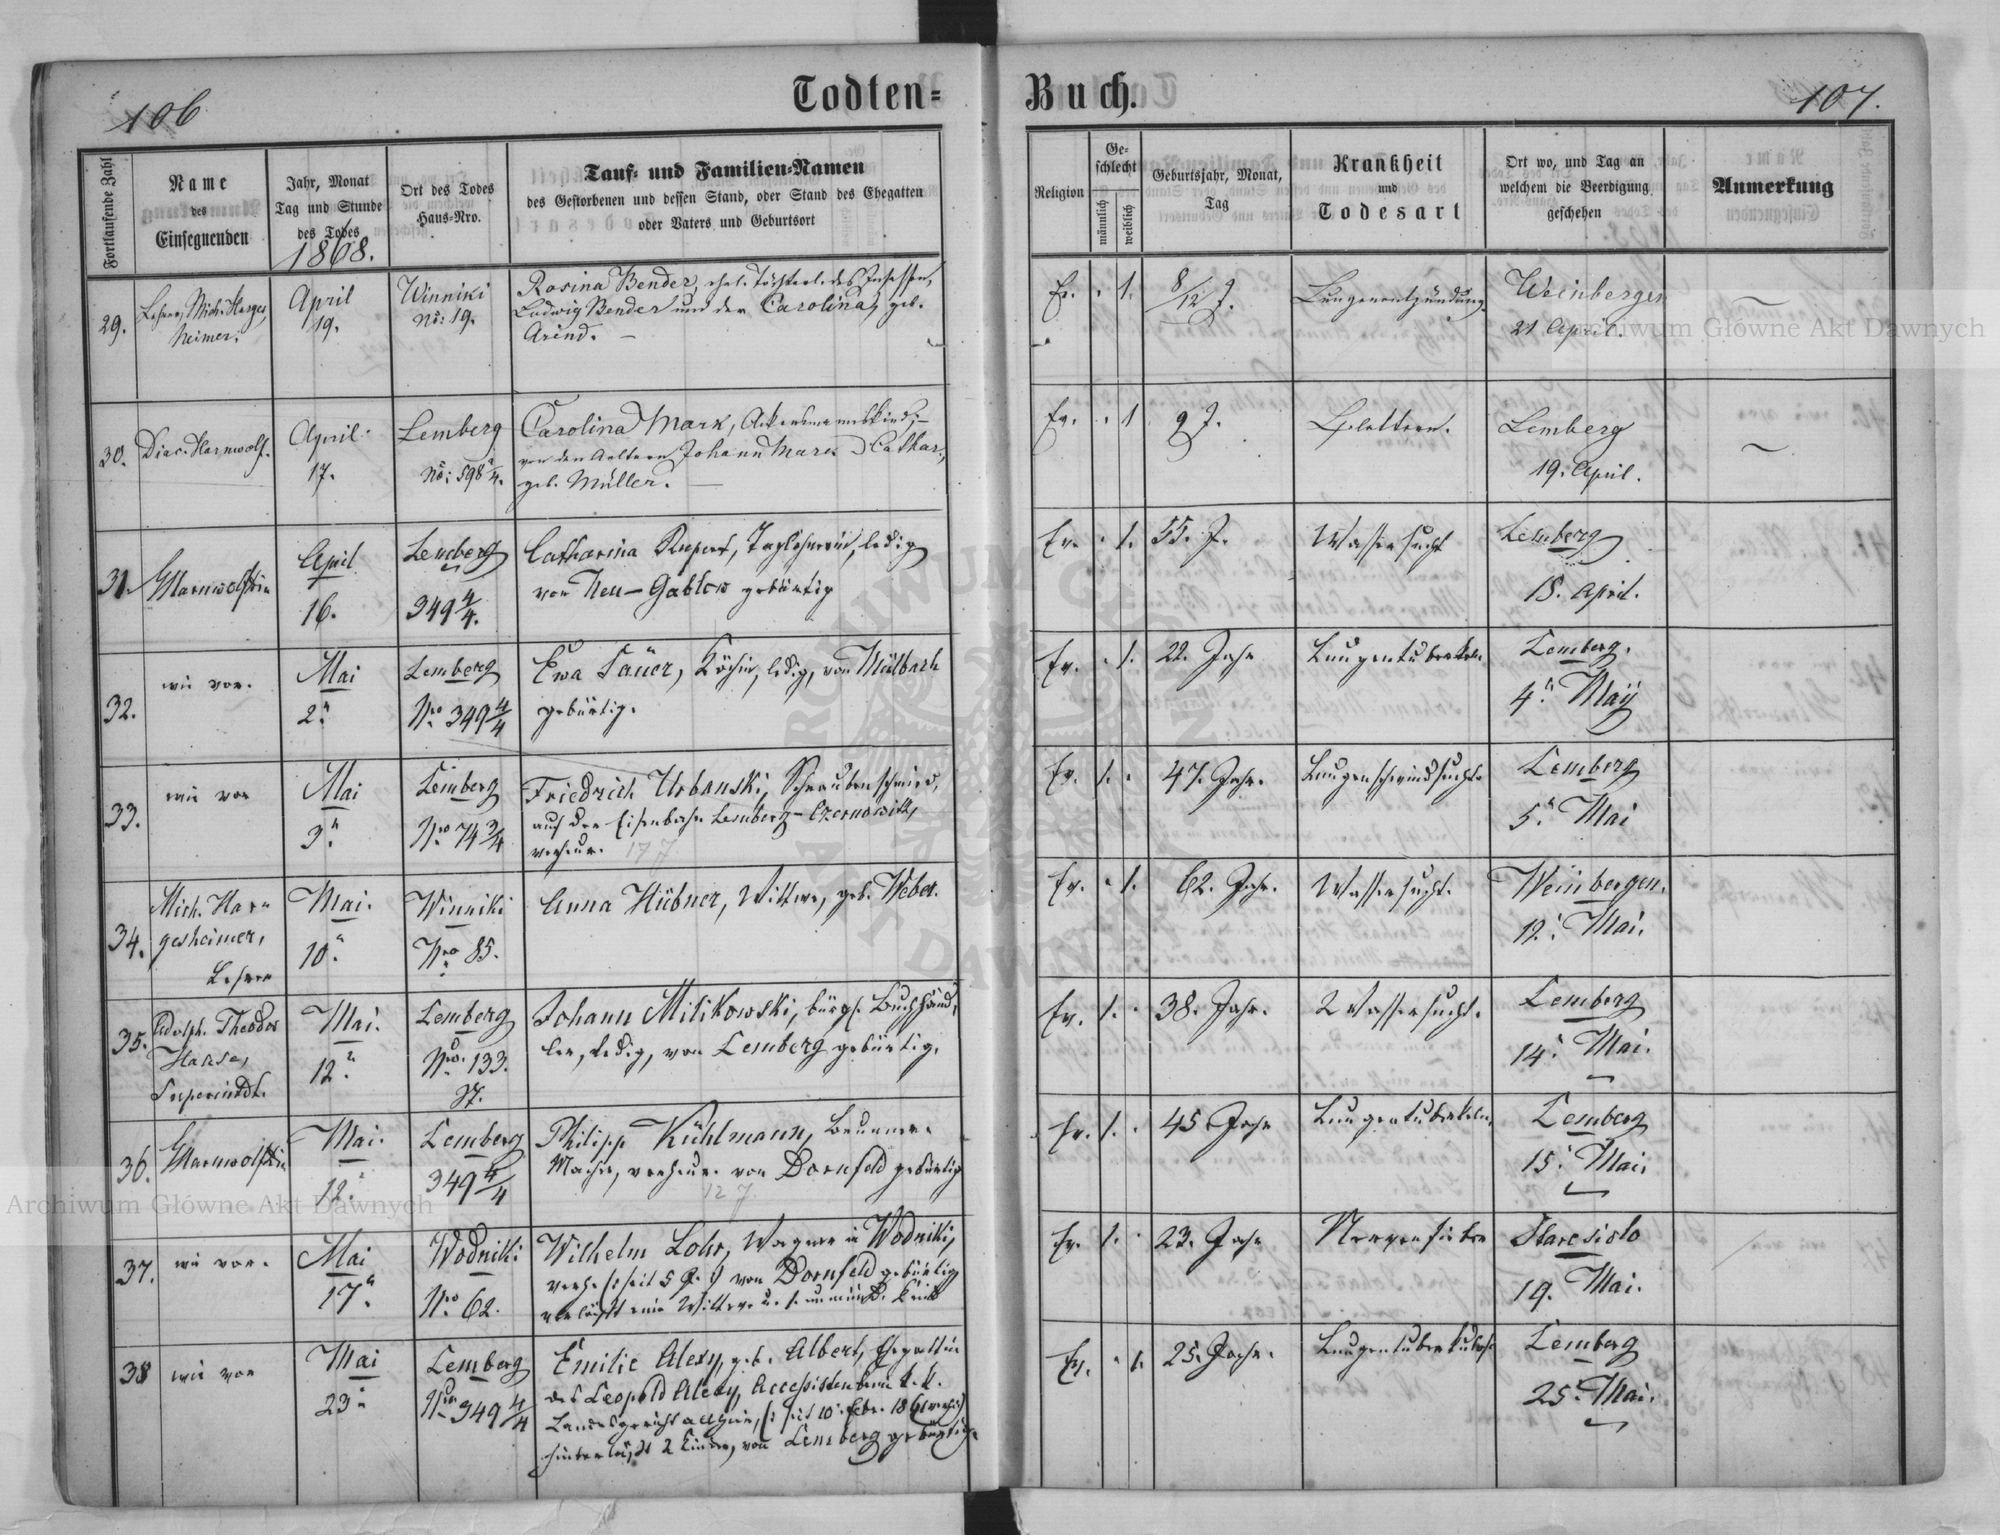 106
Todten=
Buch.
107.
Fortlaufende Zahl
Name
des
Einsegnenden
Jahr, Monat
Tag und Stunde
des Todes
1868.
Ort des Todes
Haus-Nro.
Tauf- und Familien-Namen
des Gestorbenen und dessen Stand, oder Stand des Ehegatten
oder Vaters und Geburtsort
Religion
Ge-
schlecht
männlich
weiblich
Geburtsjahr, Monat,
Tag
Krankheit
und
Todesart
Ort wo, und Tag an
welchem die Beerdigung
geschehen
Anmerkung
29.
Lehrer Mich. Harges,
heimer.
April
19.
Winniki
No: 19.
Rosina Bender, ehel. Töchterl. des Insassen,
Ludwig Bender und der Carolina, geb.
Arend. —
Ev. . 1.
8/12 J.
Lungenentzündung.
Weinbergen
21 April.
30.
Diac. Harnwolf.
April
17.
Lemberg
No: 598 2/4.
Carolina Mark, Ackersmannskind,
von den Aeltern Johann Mark Cathar.,
geb. Müller. —
Ev. . 1
9 J.
Blattern.
Lemberg
19. April.
31.
April
16.
Lemberg
349 4/4.
Catharina Rupert, Taglöhnerin, ledig
von Neu-Gablow gebürtig
Ev. . 1.
55. J.
Wassersucht
Lemberg
18. April.
32.
wie vor.
Mai
2.
Lemberg
Nro 349 4/4
Ewa Säuer, Köchin, ledig, von Mülbach
gebürtig.
Ev. . 1.
22. Jahr
Lungentuberkeln
Lemberg.
4. Maÿ
33.
wie vor
Mai
3.
Lemberg
Nro 74 3/4
Friedrich Urbanski, Schraubenschmied,
auf der Eisenbahn Lemberg-Czernowitz,
verheur. 177
Ev. 1. .
47. Jahr.
Lungenschwindsucht.
Lemberg
5. Mai
34.
Mich. Har=
gesheimer,
Lehrer
Mai.
10.
Winniki
Nro 85.
Anna Hübner, Wittwe, geb. Weber.
Ev. . 1.
62. Jahr.
Wassersucht.
Weinbergen.
12. Mai.
35.
Adolph. Theodor
Haase,
Superindt.
Mai.
12.
Lemberg
Nro. 133.
Johann Milikowski, bürgl. Buchhänd,
ler, ledig, von Lemberg gebürtig.
Ev. 1. .
38. Jahr.
Wassersucht.
Lemberg
14. Mai.
36.
Mai.
12.
Lemberg
349 4/4
Philipp Kühlmann, Brunnen-
Macher, verheur. von Dornfeld gebürtig
127
Ev. 1. .
45 Jahr
Lungentuberkeln.
Lemberg
15. Mai.
37.
wie vor.
Mai
17.
Wodniki
Nro 62.
Wilhelm Lohr, Wagner in Wodniki,
verhe. (: seit 5 J. :) von Dornfeld gebürtig
verläßt eine Wittwe u. 1. unmünd. Kind
Ev. 1. .
23. Jahr
Nervenfieber
Staresiolo
19. Mai.
38
wie vor
Mai
23.
Lemberg
Nro 349 4/4
Emilie Alexy, geb. Albert, Ehegattin
des Leopold Alexy, Accessisten beim k. k.
hinterläßt 2 Kinder, von Lemberg gebürtig.
Ev. . 1.
25. Jahr.
Lungentuberkulose
Lemberg
25. Mai.
Archiwum Główne Akt Dawnych
Archiwum Główne Akt Dawnych